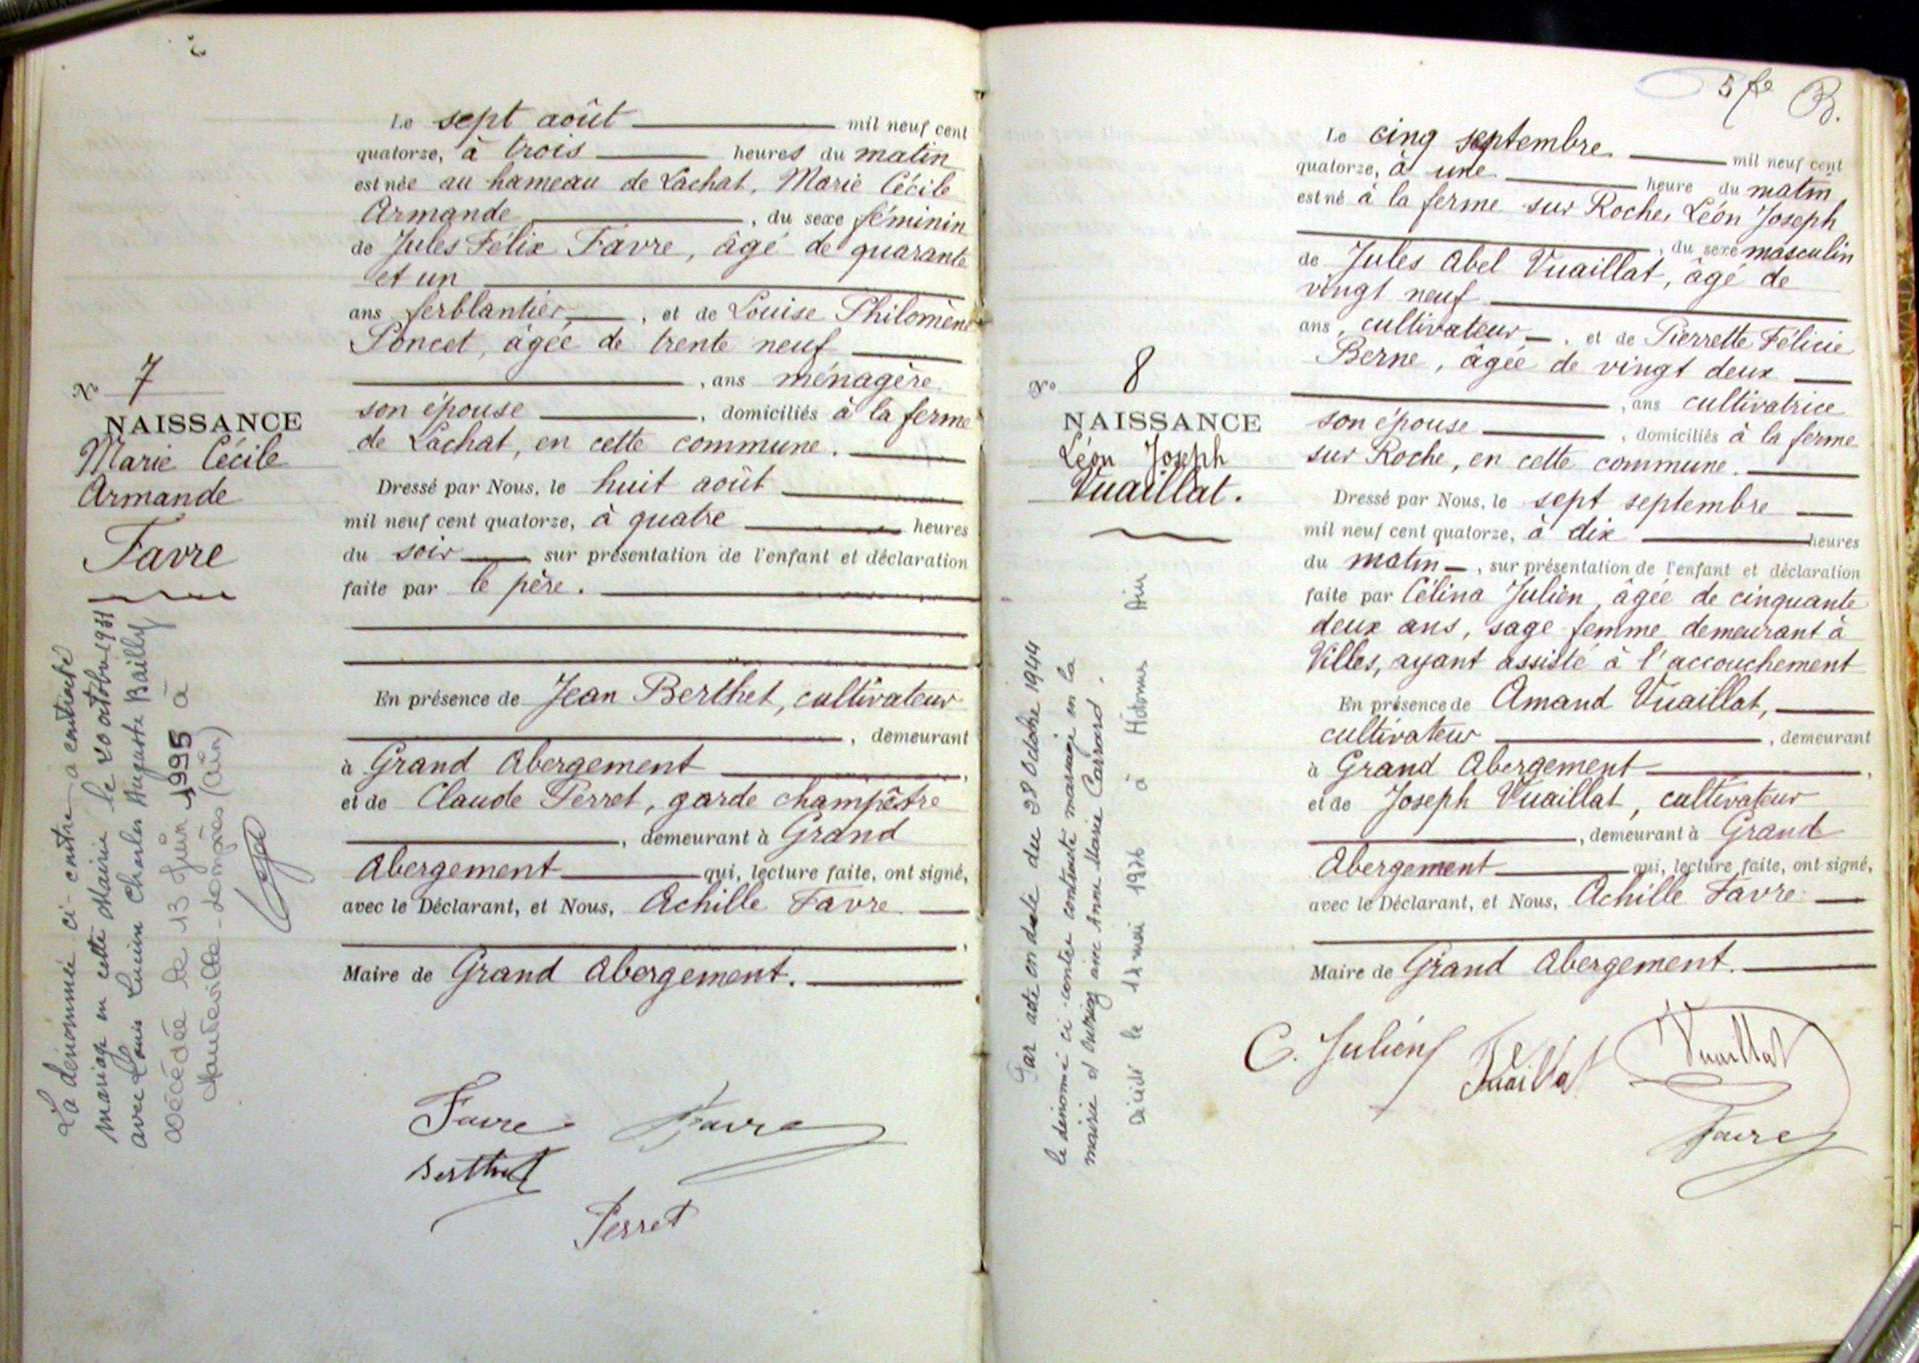 Le sept août mil neuf cent
quatorze, à trois heures du matin
est née au hameau de Lachat, Marie Cécile
Armande, du sexe féminin
de Jules Félix Favre, âgé de quarante
et un
ans ferblantier, et de Louise Philomène
Poncet, âgée de trente neuf
, ans ménagère
son épouse, domiciliés à la ferme
de Lachat, en cette commune.
Dressé par Nous, le huit août
mil neuf cent quatorze, à quatre heures
du soir sur présentation de l'enfant et déclaration
faite par le père.
En présence de Jean Berthet, cultivateur
, demeurant
à Grand Abergement,
et de Claude Perret, garde champêtre
, demeurant à Grand
Abergement qui, lecture faite, ont signé,
avec le Déclarant, et Nous, Achille Favre
,
Maire de Grand Abergement.
Favre Favre
Berthet
Perret
N° 7
NAISSANCE
Marie Cécile
Armande
Favre
La dénommée ci-contre a contracté
mariage en cette Mairie le octobre
avec Louis Lucien Charles Auguste Bailly
Décédée le 13 Juin 1995 à
Hauteville-Lompnes (Ain)
5 fe B.
Le cinq septembre mil neuf cent
quatorze, à une heure du matin
est né à la ferme sur Roche, Léon Joseph
, du sexe masculin
de Jules Abel Vuaillat, âgé de
vingt neuf
ans, cultivateur, et de Pierrette Félicie
Berne, âgée de vingt deux
, ans cultivatrice
son épouse, domiciliés à la ferme
sur Roche, en cette commune.
Dressé par Nous, le sept septembre
mil neuf cent quatorze, à dix heures
du matin, sur présentation de l'enfant et déclaration
faite par Célina Julien, âgée de cinquante
deux ans, sage femme demeurant à
Villes, ayant assisté à l'accouchement
En présence de Amand Vuaillat,
cultivateur, demeurant
à Grand Abergement,
et de Joseph Vuaillat, cultivateur
, demeurant à Grand
Abergement qui, lecture faite, ont signé,
avec le Déclarant, et Nous, Achille Favre
Maire de Grand Abergement.
C. Julien Vuaillat Vuaillat
Favre
N° 8
NAISSANCE
Léon Joseph
Vuaillat.
Par acte en date du 28 Octobre 1944
le dénomé ci-contre contracte mariage en la
mairie d' avec Anne Marie Carrard.
Décédé le 12 mai 1976 à Hotonnes Ain